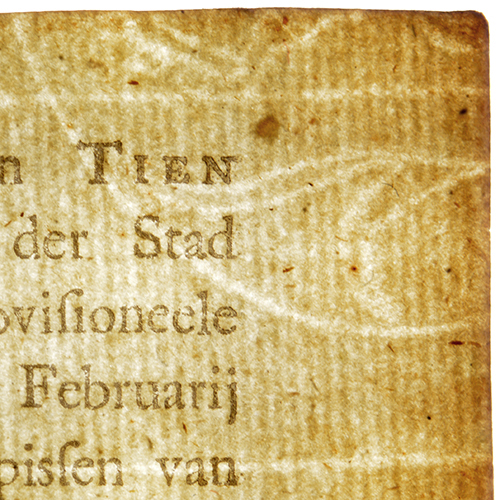 n TIEN
der Stad
oviſioneele
Februarij
piſſen van